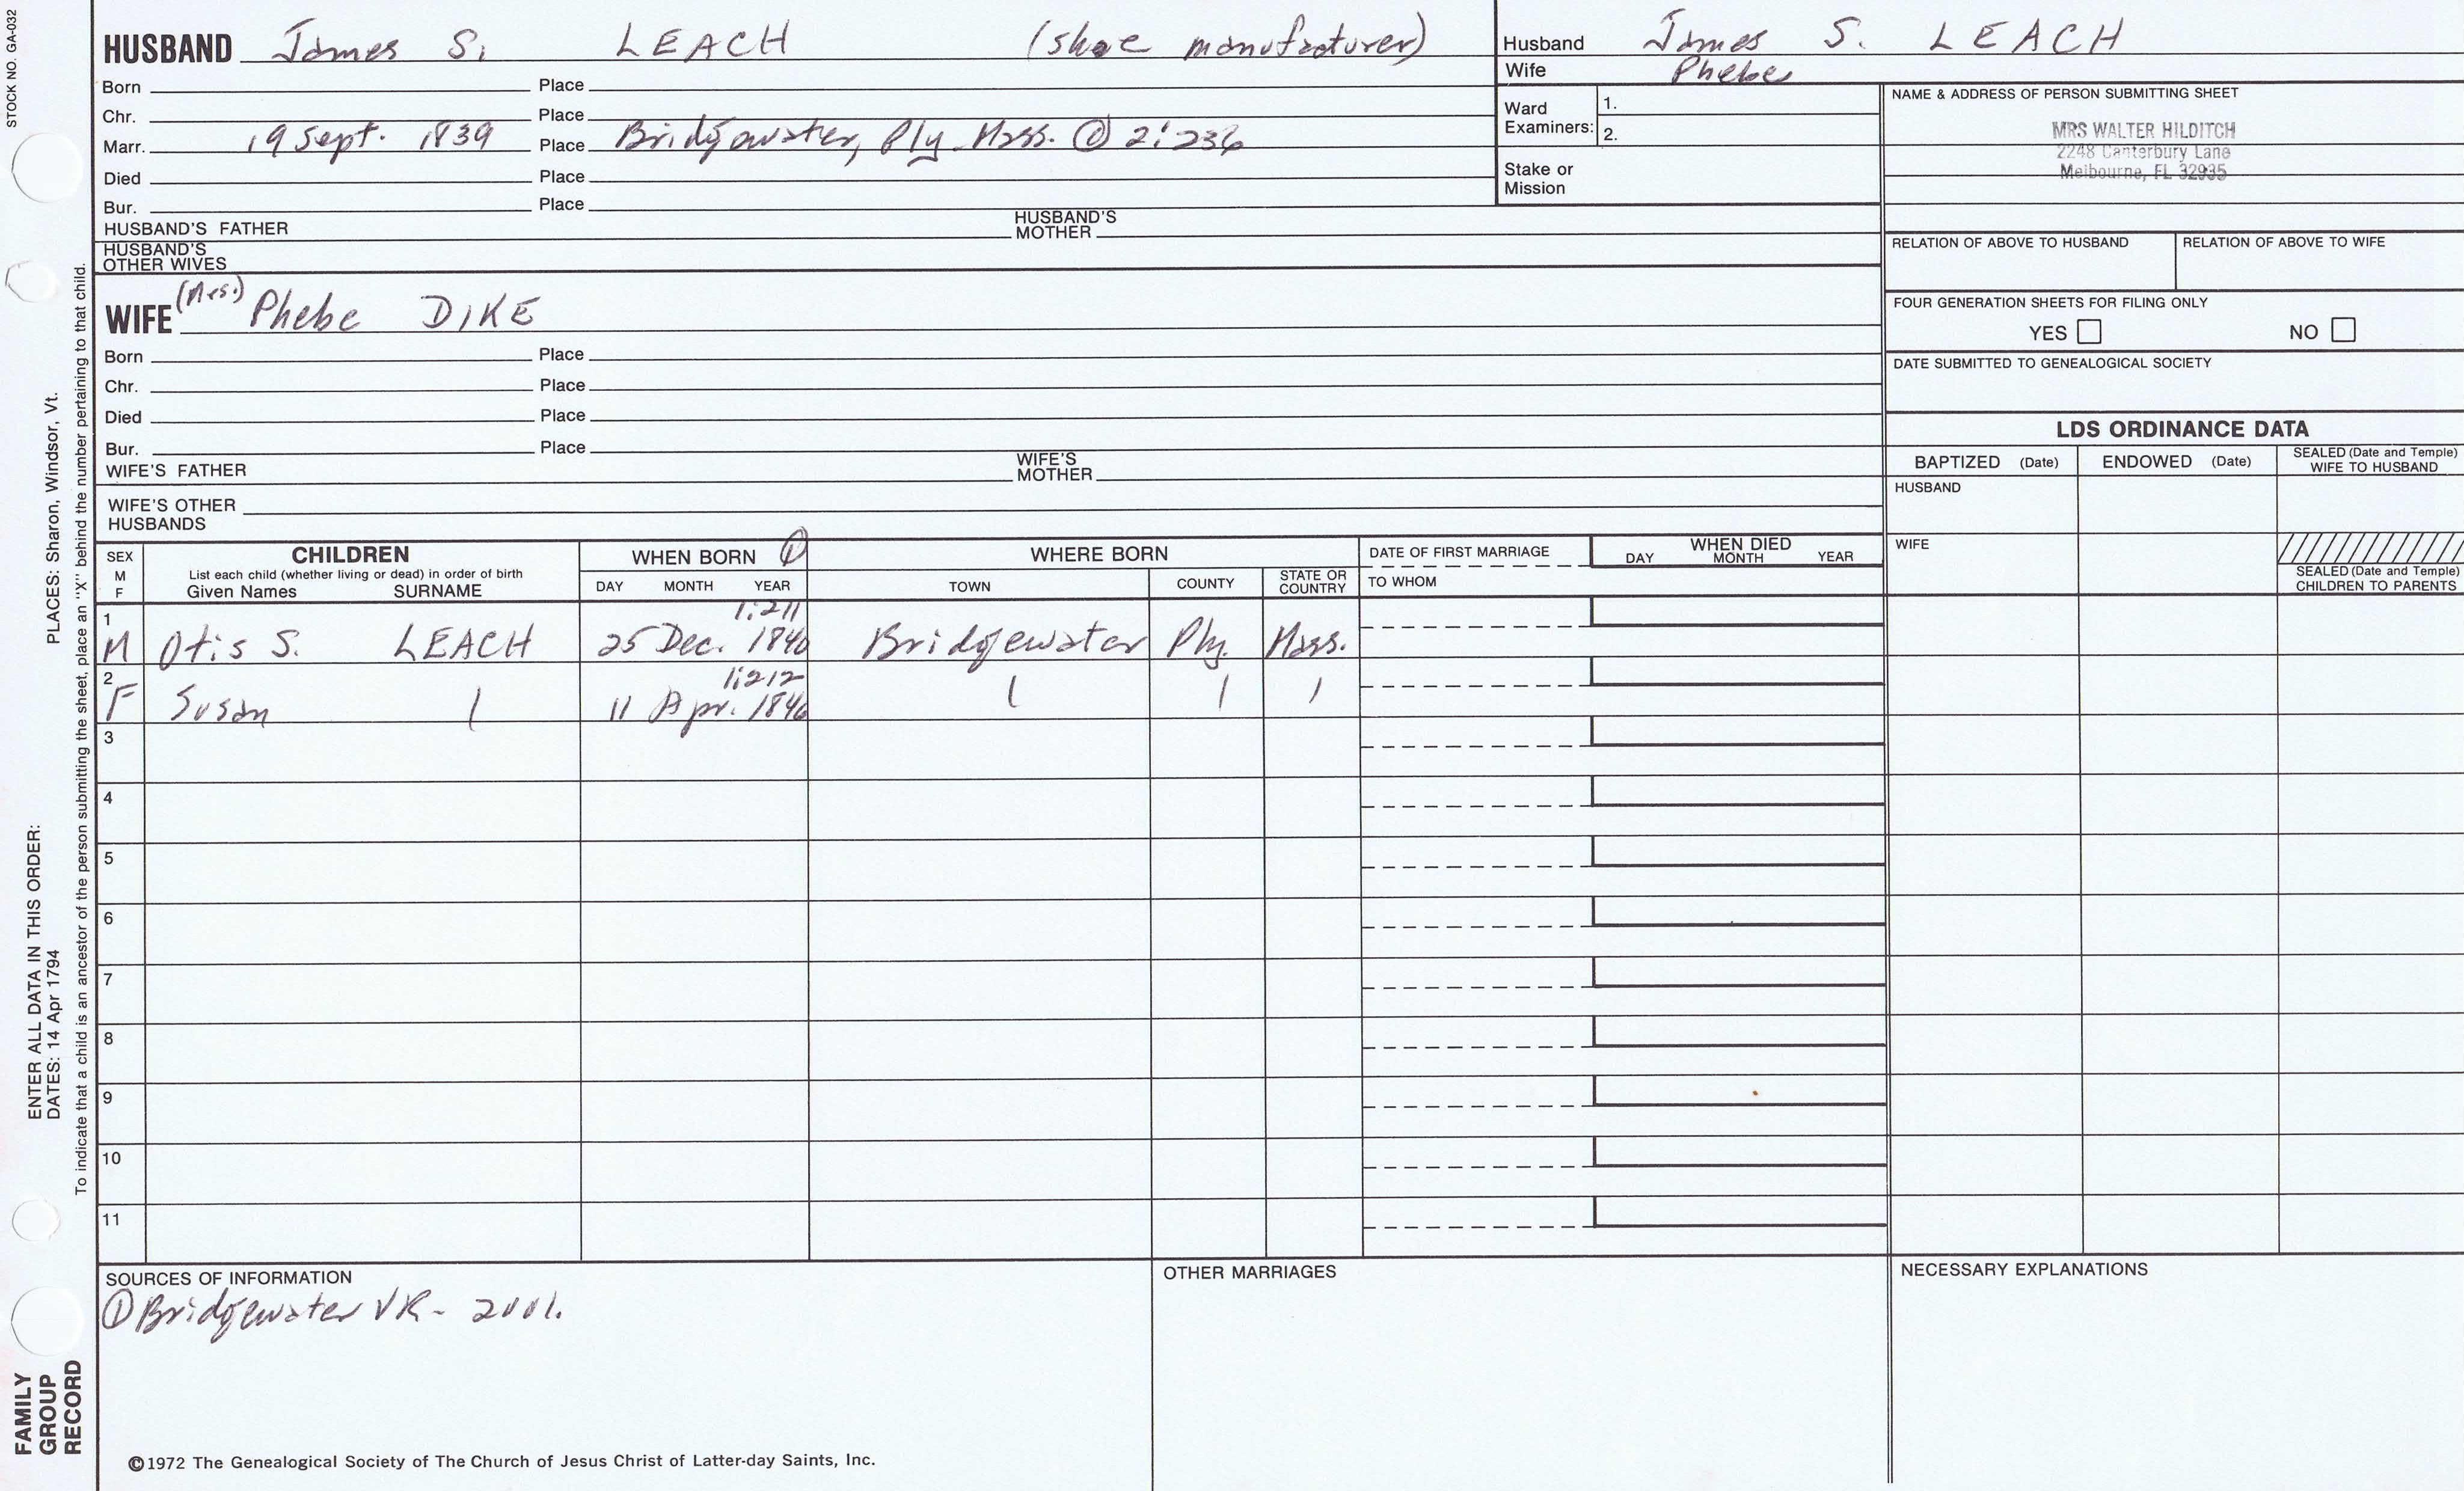 STOCK NO. GA-032
HUSBAND James S. LEACH (shoe manufacturer)
Born Place
Chr. Place
Marr. 19 Sept. 1839 Place Bridgewater, Ply. Mass. ① 2:236
Died Place
Bur. Place
HUSBAND'S FATHER HUSBAND'S MOTHER
HUSBAND'S OTHER WIVES
Husband James S. LEACH
Wife Phebe
Ward Examiners: 1.
2.
Stake or Mission
NAME & ADDRESS OF PERSON SUBMITTING SHEET
MRS WALTER HILDITCH
2248 Canterbury Lane
Melbourne, FL 32935
RELATION OF ABOVE TO HUSBAND RELATION OF ABOVE TO WIFE
FOUR GENERATION SHEETS FOR FILING ONLY
YES NO
DATE SUBMITTED TO GENEALOGICAL SOCIETY
WIFE (Mrs.) Phebe DIKE
Born Place
Chr. Place
Died Place
Bur. Place
WIFE'S FATHER WIFE'S MOTHER
WIFE'S OTHER HUSBANDS
LDS ORDINANCE DATA
BAPTIZED (Date) ENDOWED (Date) SEALED (Date and Temple) WIFE TO HUSBAND
HUSBAND
WIFE
SEALED (Date and Temple) CHILDREN TO PARENTS
SEX M F
CHILDREN
List each child (whether living or dead) in order of birth
Given Names SURNAME
WHEN BORN ①
DAY MONTH YEAR
WHERE BORN
TOWN COUNTY STATE OR COUNTRY
DATE OF FIRST MARRIAGE
TO WHOM
WHEN DIED
DAY MONTH YEAR
1 1:211
M Otis S. LEACH 25 Dec. 1840 Bridgewater Ply. Mass.
2 1:212
F Susan 11 Apr. 1846
3
4
5
6
7
8
9
10
11
SOURCES OF INFORMATION
① Bridgewater VR - 2 vol.
OTHER MARRIAGES
NECESSARY EXPLANATIONS
©1972 The Genealogical Society of The Church of Jesus Christ of Latter-day Saints, Inc.
ENTER ALL DATA IN THIS ORDER:
DATES: 14 Apr 1794 PLACES: Sharon, Windsor, Vt.
To indicate that a child is an ancestor of the person submitting the sheet, place an "X" behind the number pertaining to that child.
FAMILY
GROUP
RECORD